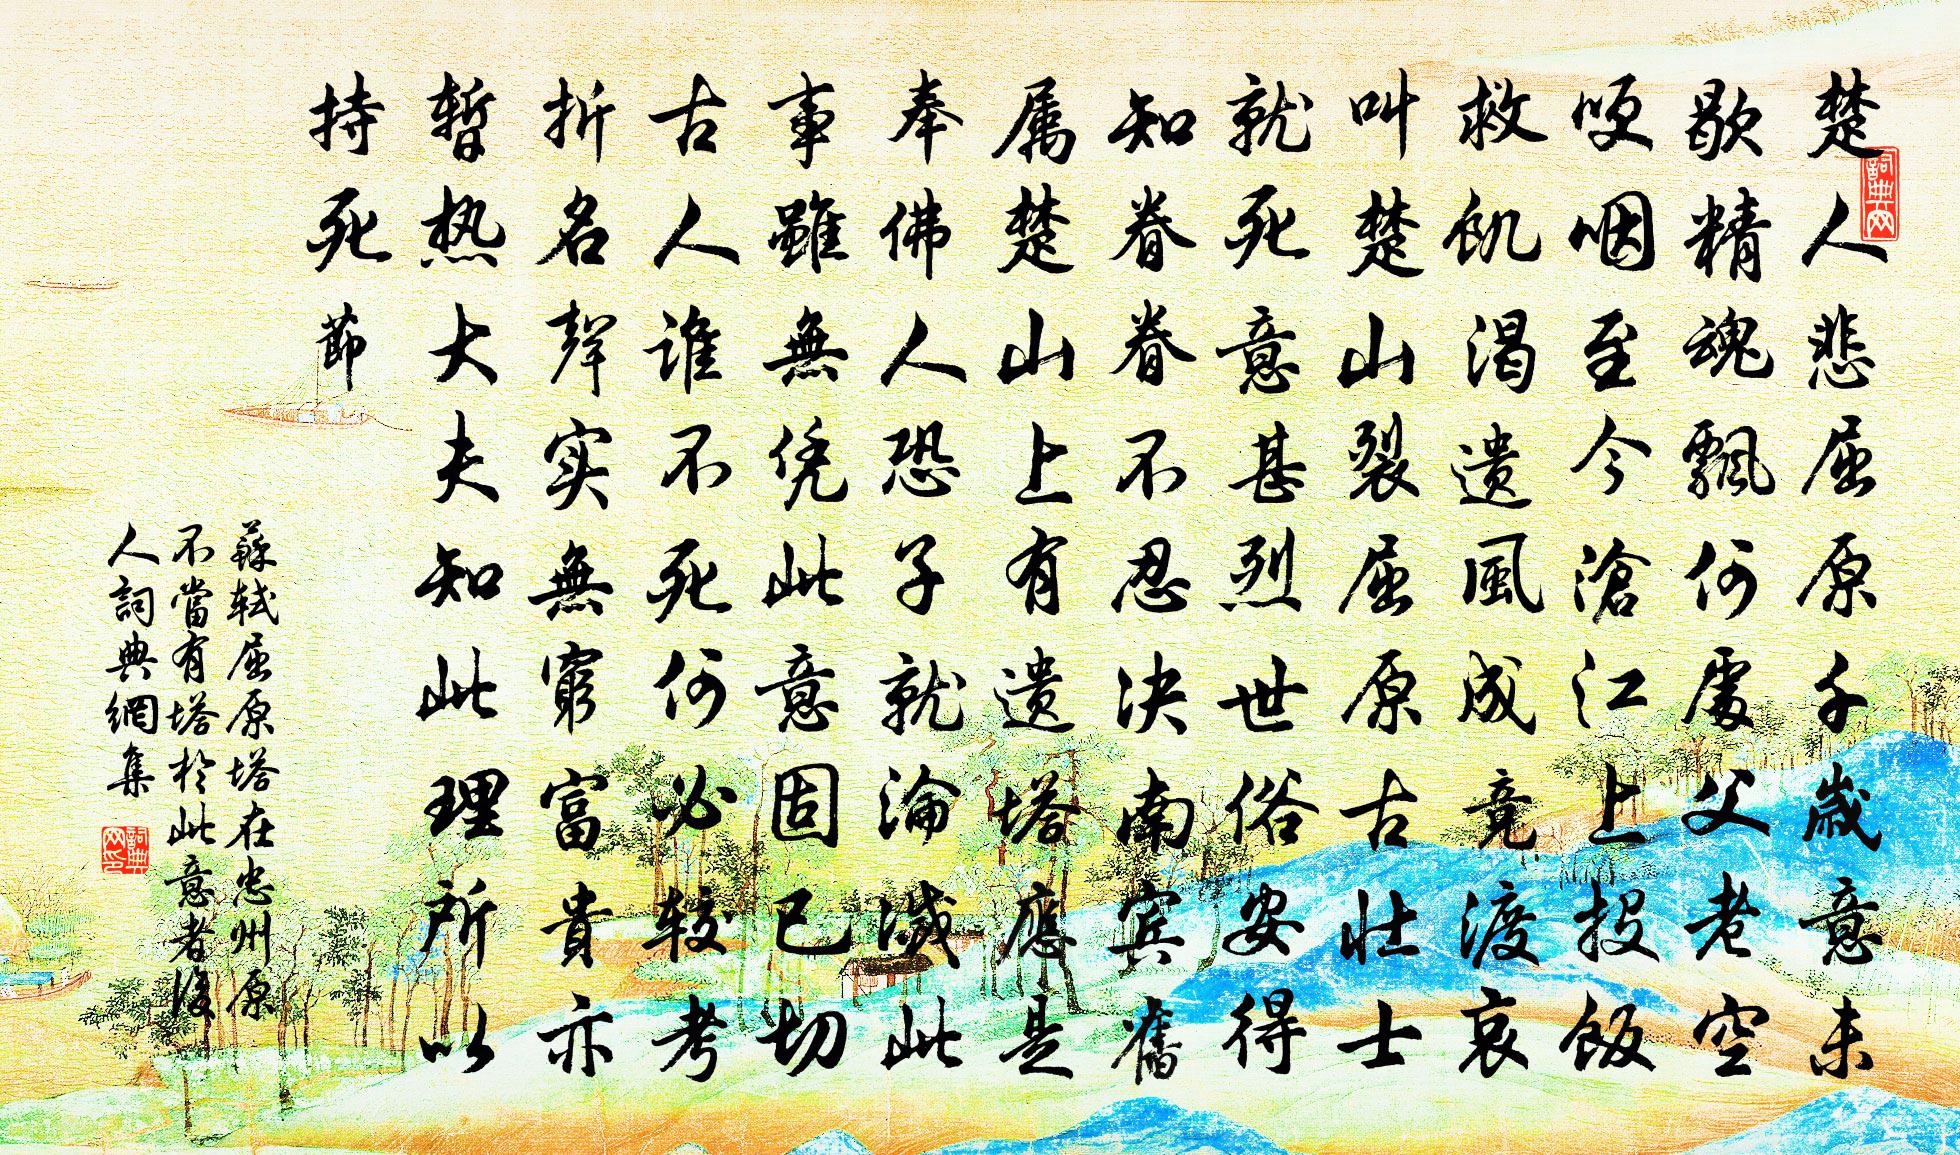 楚人悲屈原千歲意未
歇精魂飄何處父老空
哽咽至今滄江上投飯
救飢渴遺風成竟渡哀
叫楚山裂屈原古壯士
就死意甚烈世俗安得
知眷眷不忍決南賓舊
属楚山上有遺塔應是
奉佛人恐子就淪滅此
事雖無凭此意固已切
古人谁不死何必较考
折名聲实無窮富貴亦
暫热大夫知此理所以
持死節
蘇軾屈原塔在忠州原
不當有塔於此意者後
人詞典網集
詞典网